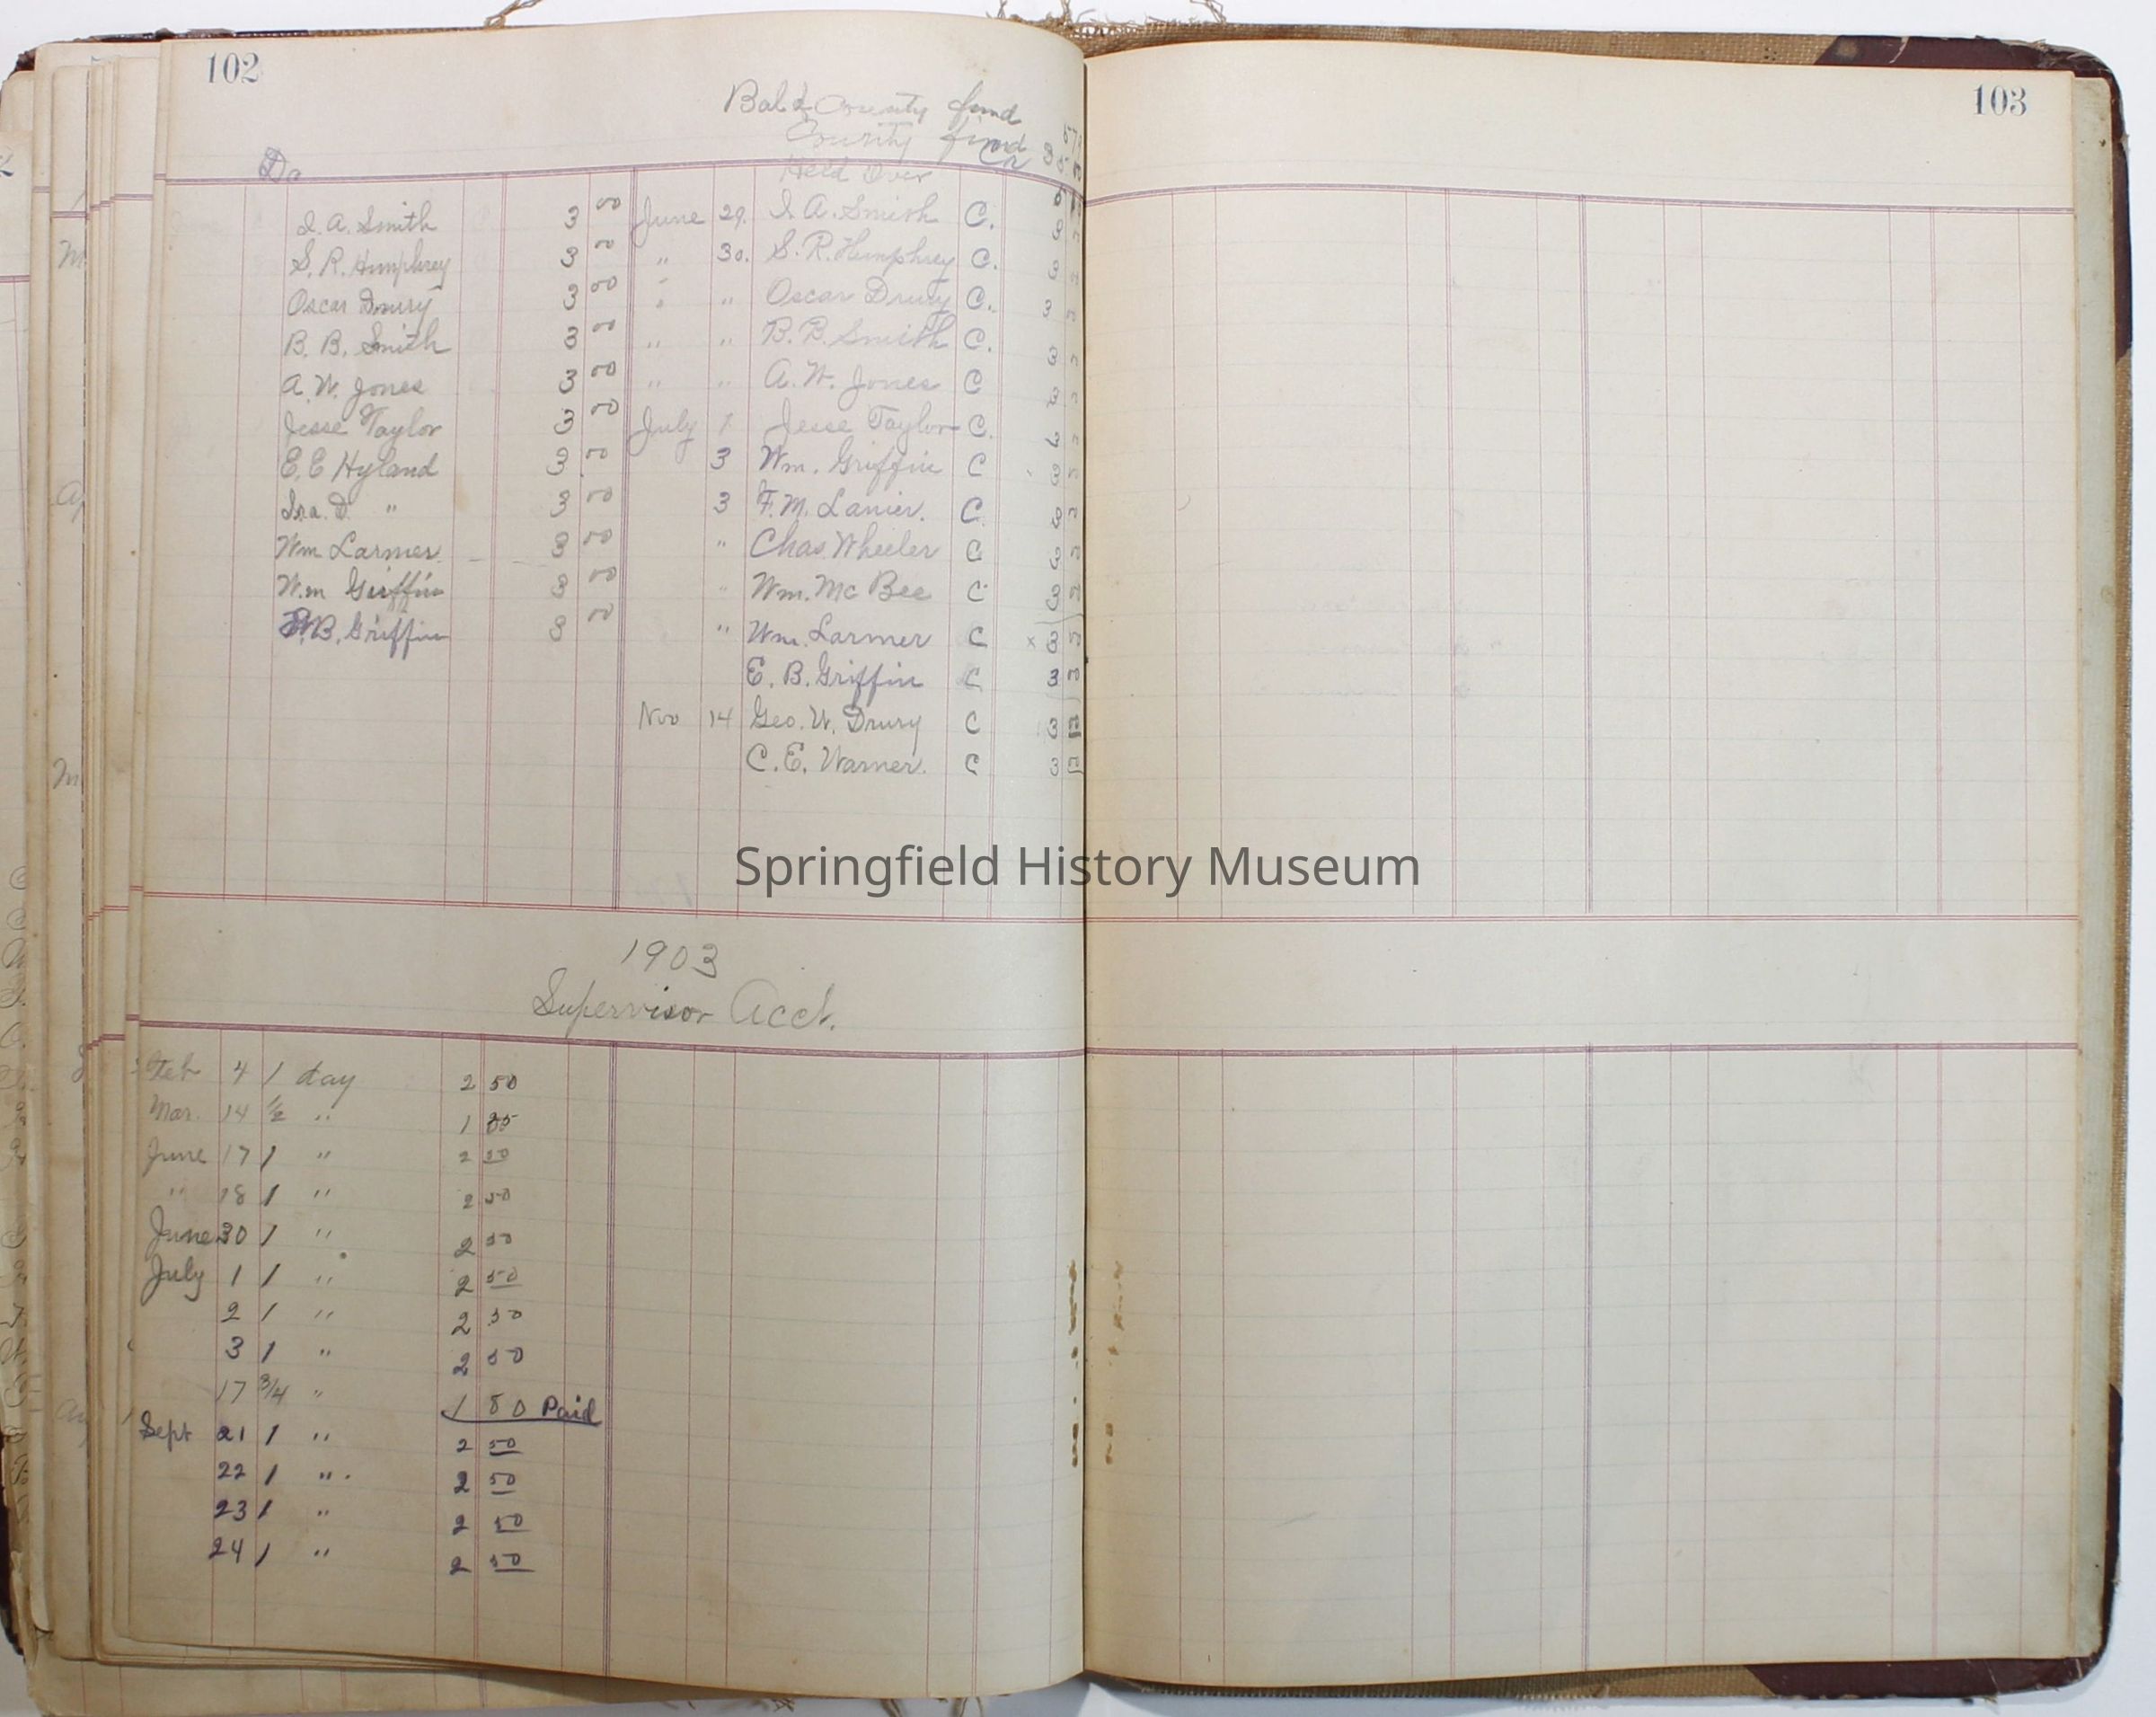 102
103
Bal & County fund
County fund
Dr Cr
Held Over
I. A. Smith 3 00 June 29. I. A. Smith C. 3
S. R. Humphrey 3 00 " 30. S. R. Humphrey C. 3
Oscar Drury 3 00 " " Oscar Drury C. 3
B. B. Smith 3 00 " " B. B. Smith C. 3
A. W. Jones 3 00 " " A. W. Jones C 3
Jesse Taylor 3 00 July 1 Jesse Taylor C. 3
E. E Hyland 3 00 3 Wm. Griffin C 3
Ira. D. " 3 00 3 F. M. Lanier. C. 3
Wm Larmer 3 00 " Chas Wheeler C 3
Wm Griffin 3 00 " Wm. Mc Bee C 3
B. Griffin 3 00 " Wm. Larmer C x 3
E. B. Griffin C 3
Nov 14 Geo. W. Drury C 3
C. E. Warner. C 3
Springfield History Museum
1903
Supervisor Acct.
Feb 4 1 day 2 50
Mar. 14 1/2 " 1 25
June 17 1 " 2 50
" 18 1 " 2 50
June 30 1 " 2 50
July 1 1 " 2 50
2 1 " 2 50
3 1 " 2 50
17 3/4 " 1 80 Paid
Sept 21 1 " 2 50
22 1 " 2 50
23 1 " 2 50
24 1 " 2 50